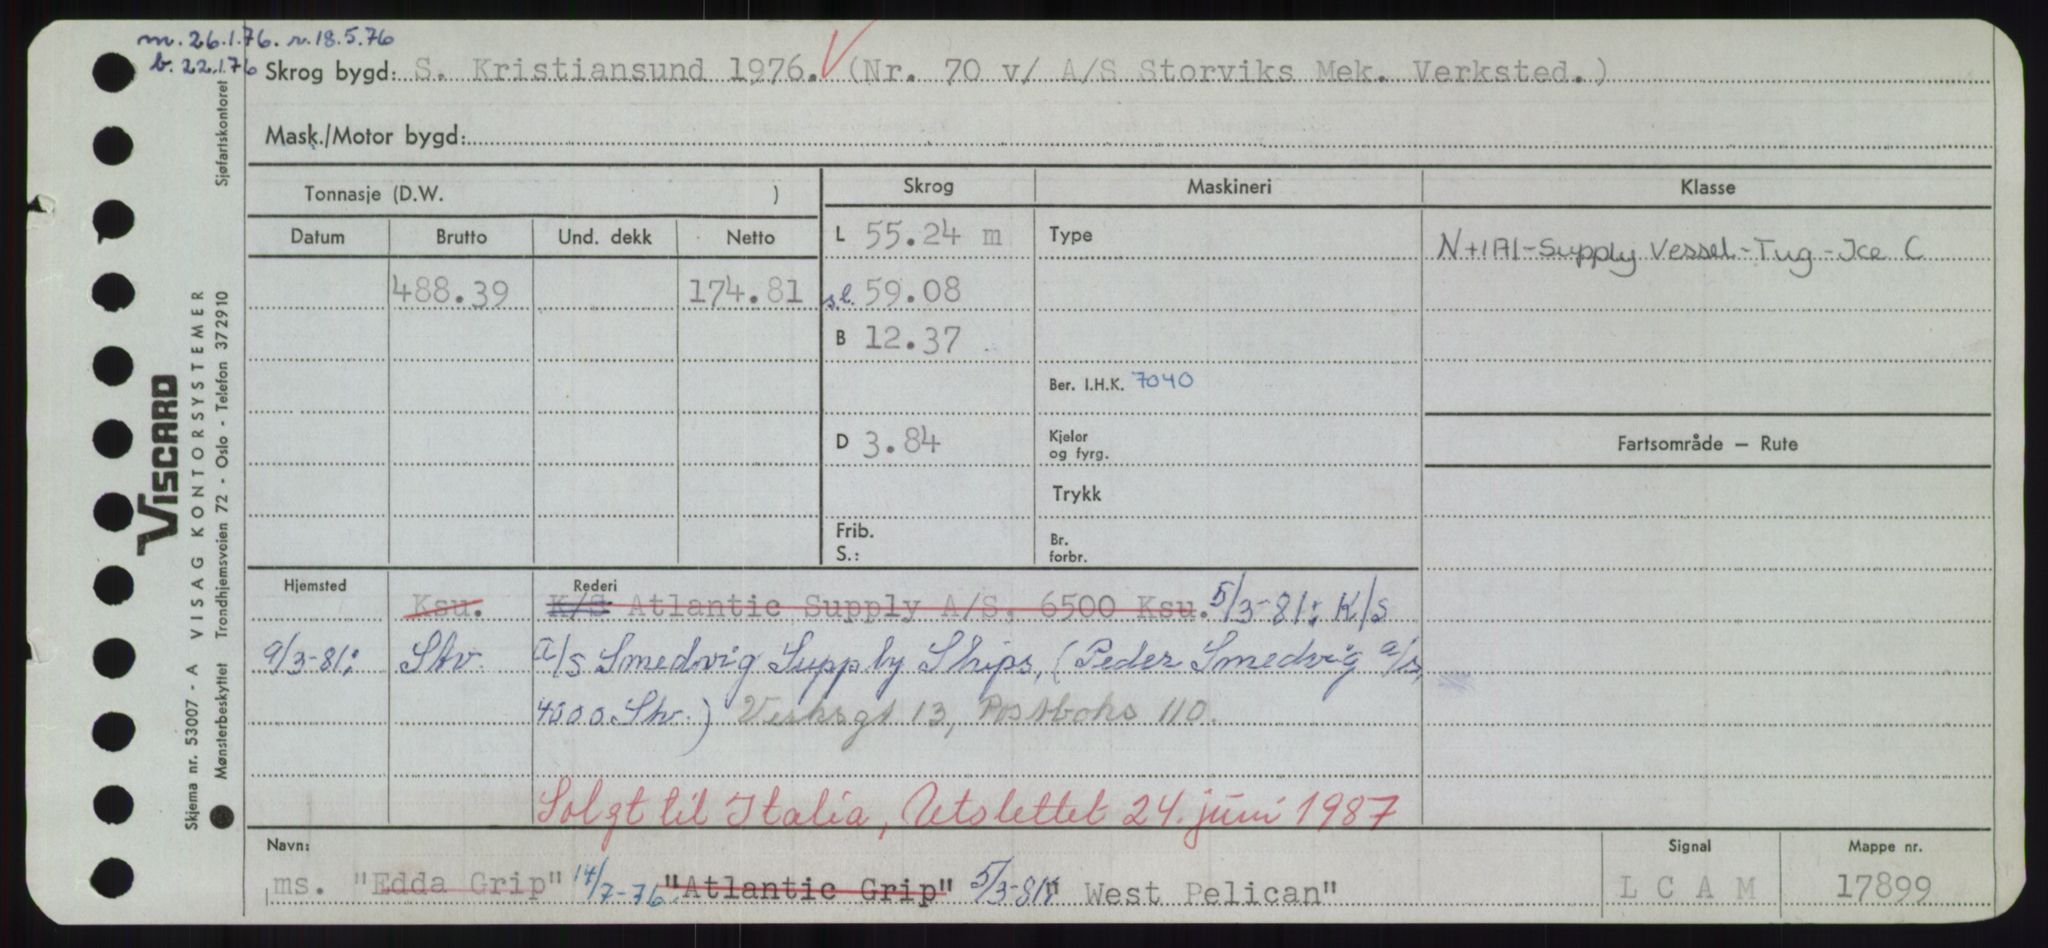 m. 26.1.76. r. 18.5.76
b. 22.1.76 Skrog bygd: S. Kristiansund 1976. V (Nr. 70 v/ A/S Storviks Mek. Verksted.)
Mask./Motor bygd:
Tonnasje (D.W. ) Skrog Maskineri Klasse
Datum Brutto Und. dekk Netto L 55.24 m Type N+1A1-Supply Vessel-Tug-Ice C
488.39 174.81 s.l. 59.08
B 12.37
Ber. I.H.K. 7040
D 3.84 Kjeler og fyrg. Fartsområde — Rute
Trykk
Frib. S.: Br. forbr.
Hjemsted Rederi
Ksu. K/S Atlantic Supply A/S, 6500 Ksu. 5/3-81: K/s
9/3-81: Stv. A/S Smedvig Supply Ships, (Peder Smedvig A/S,
4000 Stv.) Verksgt 13, Postboks 110.
Solgt til Italia, Utslettet 24. juni 1987
Navn: Signal Mappe nr.
ms. "Edda Grip" 14/7-76. "Atlantic Grip" 5/3-81: " West Pelican" L C A M 17899
VISCARD
Skjema nr. 53007 - A VISAG KONTORSYSTEMER
Mønsterbeskyttet Trondhjemsveien 72 - Oslo - Telefon 372910
Sjøfartskontoret